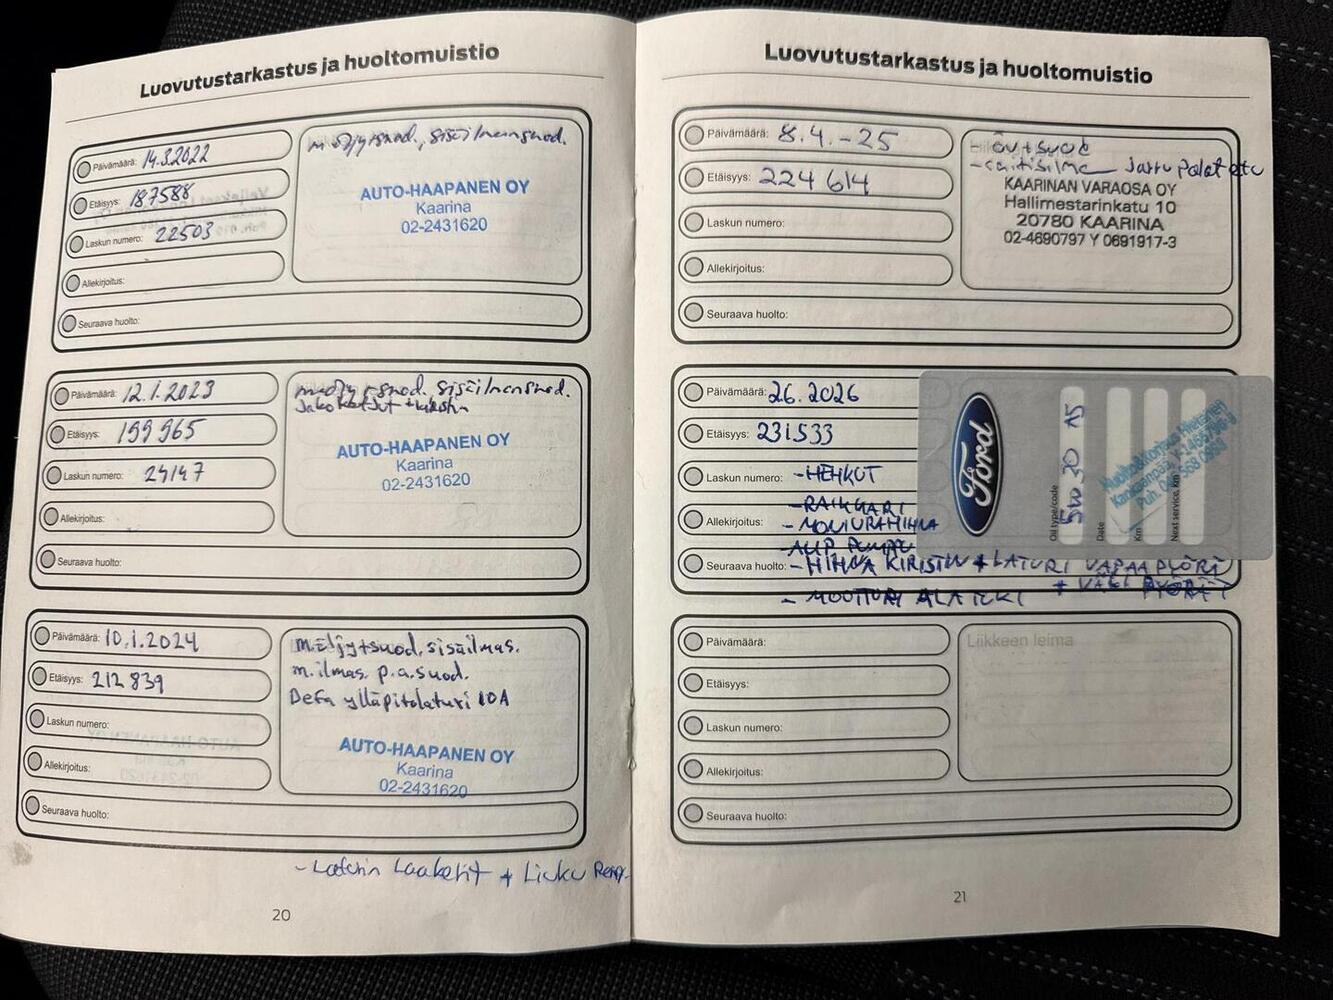 Luovutustarkastus ja huoltomuistio
Päivämäärä: 14.3.2022
Etäisyys: 187588
Laskun numero: 22503
Allekirjoitus:
Seuraava huolto:
m. öljy+suod., sisäilmansuod.
AUTO-HAAPANEN OY
Kaarina
02-2431620
Päivämäärä: 12.1.2023
Etäisyys: 199965
Laskun numero: 24147
Allekirjoitus:
Seuraava huolto:
m. öljy+suod. sisäilmansuod.
AUTO-HAAPANEN OY
Kaarina
02-2431620
Päivämäärä: 10.1.2024
Etäisyys: 212839
Laskun numero:
Allekirjoitus:
Seuraava huolto:
m.öljy+suod, sisäilmas.
m.ilmas. p.a.suod.
Defa ylläpitolaturi 10A
AUTO-HAAPANEN OY
Kaarina
02-2431620
Laakerit + Licku
20
Luovutustarkastus ja huoltomuistio
Päivämäärä: 8.4.-25
Etäisyys: 224614
Laskun numero:
Allekirjoitus:
Seuraava huolto:
Öv+suod
Jarru palat etu
KAARINAN VARAOSA OY
Hallimestarinkatu 10
20780 KAARINA
02-4690797 Y 0691917-3
Päivämäärä: 26.2026
Etäisyys: 231533
Laskun numero: -HEHKUT
-RAIKKARI
Allekirjoitus: -MONIURAHIHNA
Seuraava huolto: -HIHNA KIRISTIN + LATURI VAPAAPYÖRÄ
+ VÄLI PYÖRÄT
- MOOTTORI ALATUKI
Ford
Oil type/code
5W30 A5
Date
Km
Next service, km
Päivämäärä:
Etäisyys:
Laskun numero:
Allekirjoitus:
Seuraava huolto:
Liikkeen leima
21